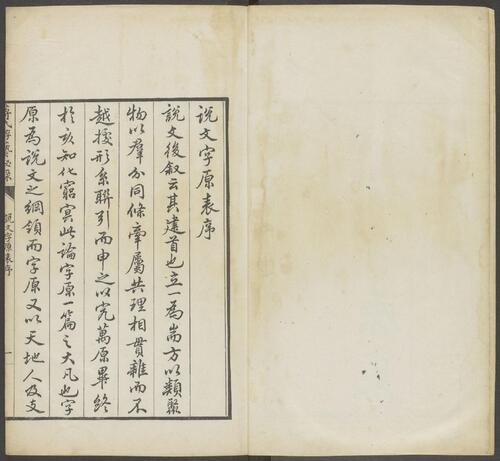 说文字原表序
說文後叙云其建首也立一為耑方以類聚
物以羣分同條牽屬共理相貫雜而不
越據形系聯引而申之以究萬原畢終
於亥知化窮冥此論字原一篇之大凡也字
原為說文之綱領而字原又以天地人及支
説文字原表序
一